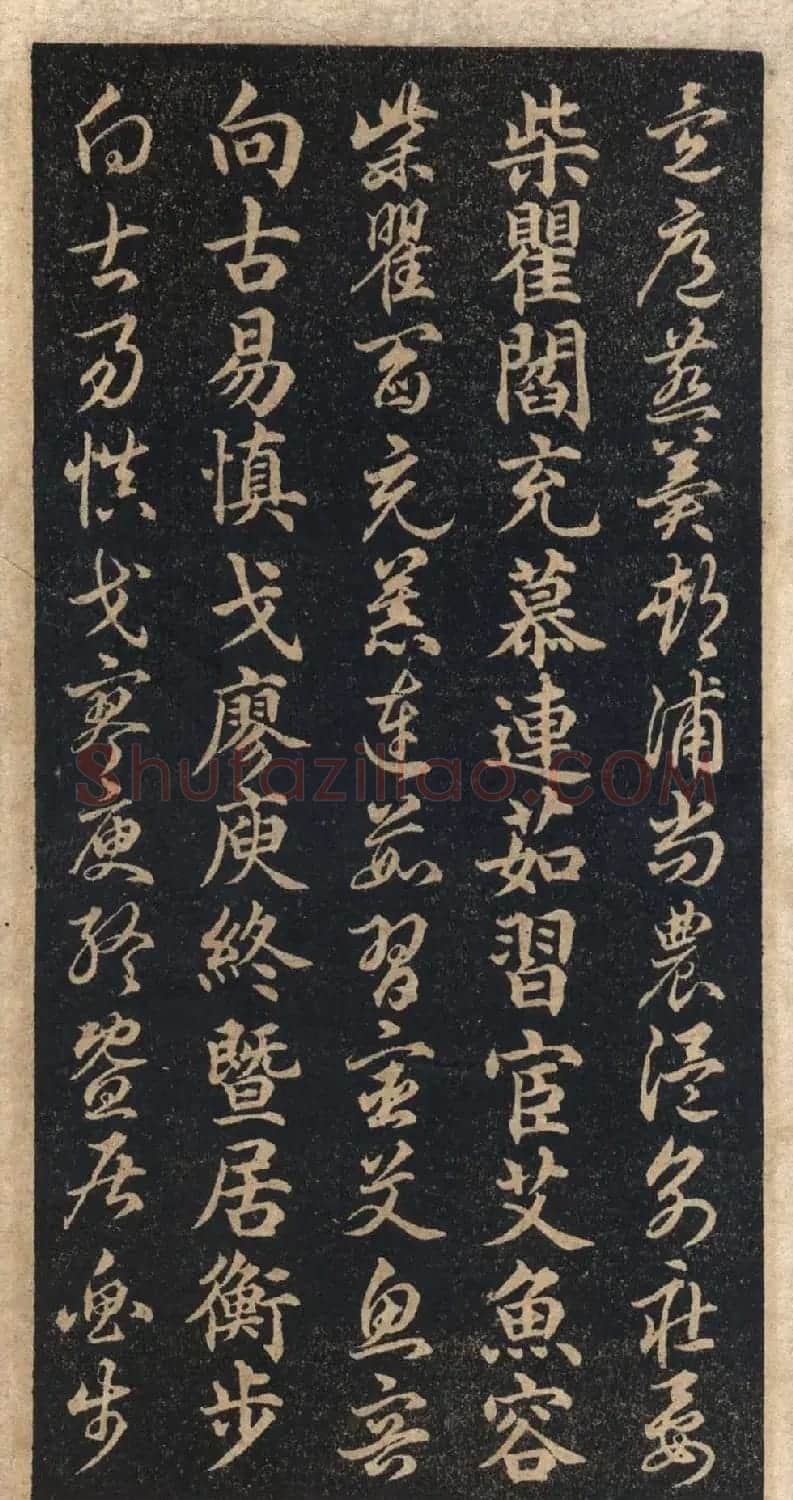 邊扈燕冀郟浦尚農溫別莊晏
柴瞿閻充慕連茹習宦艾魚容
柴瞿閻充慕連茹習宦艾魚容
向古易慎戈廖庾終暨居衡步
向古易慎戈廖庾終暨居衡步
Shufaziliao.COM